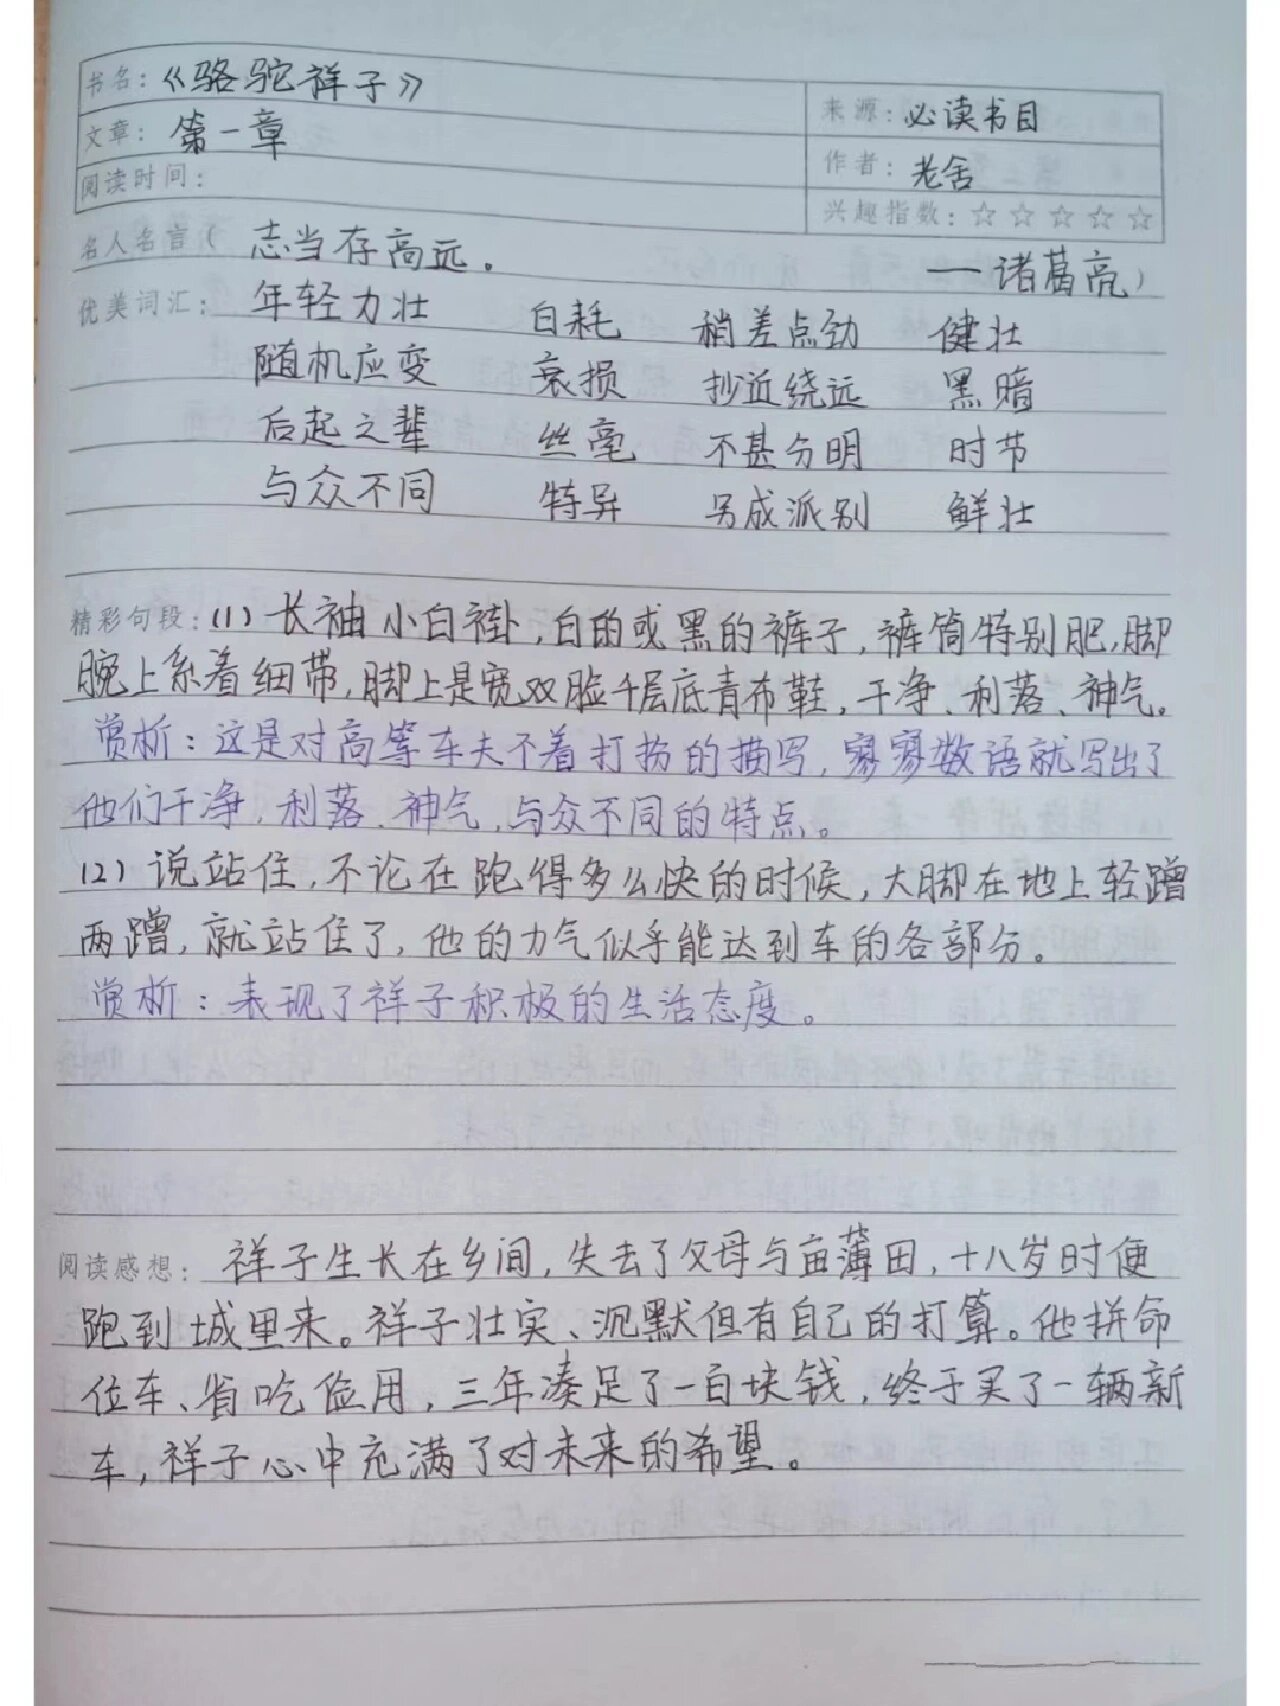 书名：《骆驼祥子》
来源：必读书目
文章：第一章
作者：老舍
阅读时间：
兴趣指数：☆☆☆☆☆
名人名言（ 志当存高远。 —诸葛亮）
优美词汇：年轻力壮 自耗 稍差点劲 健壮
随机应变 衰损 抄近绕远 黑暗
后起之辈 丝毫 不甚分明 时节
与众不同 特异 另成派别 鲜壮
精彩句段：(1) 长袖小白褂，白的或黑的裤子，裤筒特别肥，脚
腕上系着细带，脚上是宽双脸千层底青布鞋，干净、利落、神气。
赏析：这是对高等车夫不着打扮的描写，寥寥数语就写出了
他们干净、利落、神气，与众不同的特点。
(2) 说站住，不论在跑得多么快的时候，大脚在地上轻蹭
两蹭，就站住了，他的力气似乎能达到车的各部分。
赏析：表现了祥子积极的生活态度。
阅读感想：祥子生长在乡间，失去了父母与亩薄田，十八岁时便
跑到城里来。祥子壮实、沉默但有自己的打算。他拼命
位车、省吃俭用，三年凑足了一百块钱，终于买了一辆新
车，祥子心中充满了对未来的希望。